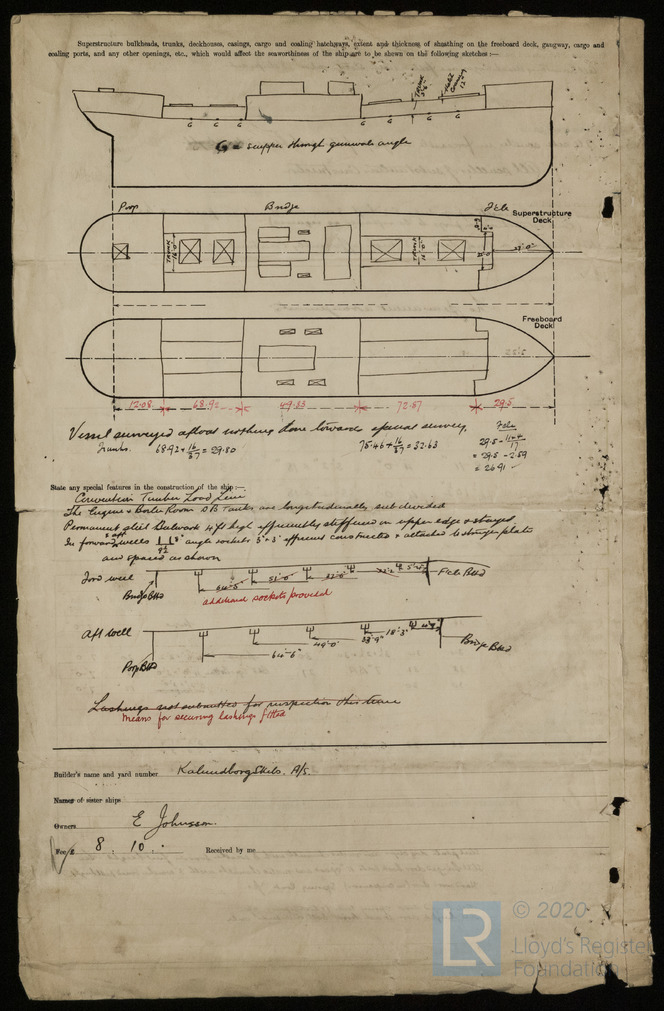 Superstructure bulkheads, trunks, deckhouses, casings, cargo and coaling hatchways, extent and thickness of sheathing on the freeboard deck, gangway, cargo and
coaling ports, and any other openings, etc., which would affect the seaworthiness of the ship are to be shown on the following sketches :—
TRUNK
G G G G G
G = scupper through gunwale angle
Poop Bridge Fcle
Superstructure
Deck
TRUNK
16'.0"
TRUNK
Freeboard
Deck
12.08 68.92 49.33 72.87 29.5
Vessel surveyed afloat nothing done towards special survey.
Trunks. 68.92 × 16/37 = 29.80
75.46 × 16/37 = 32.63
29.5 -
= 29.5 - 2.59
= 26.91
State any special features in the construction of the ship :—
Timber Load Line
The Engine & Boiler Room DB Tanks are longitudinally subdivided
Permanent steel Bulwark 4 ft high efficiently stiffened on upper edge & stayed
In forward & aft wells angle sockets 5" × 3" efficient constructed & attached to stringer plate
and spaced as shown
Ford well
Bridge Bhd
64'-5"
51'-0"
Fcle Bhd
additional sockets provided
Aft well
Poop Bhd
64'-6"
49'-0"
33'-9"
18'-3"
Bridge Bhd
Lashings not submitted for inspection this time
Means for securing lashings fitted
Builder's name and yard number Kalundborg Skibs. A/s.
Names of sister ships
Owners E Johnsson.
Fee £ 8 : 10 : -
Received by me
LR
© 2020
Lloyd's Register
Foundation